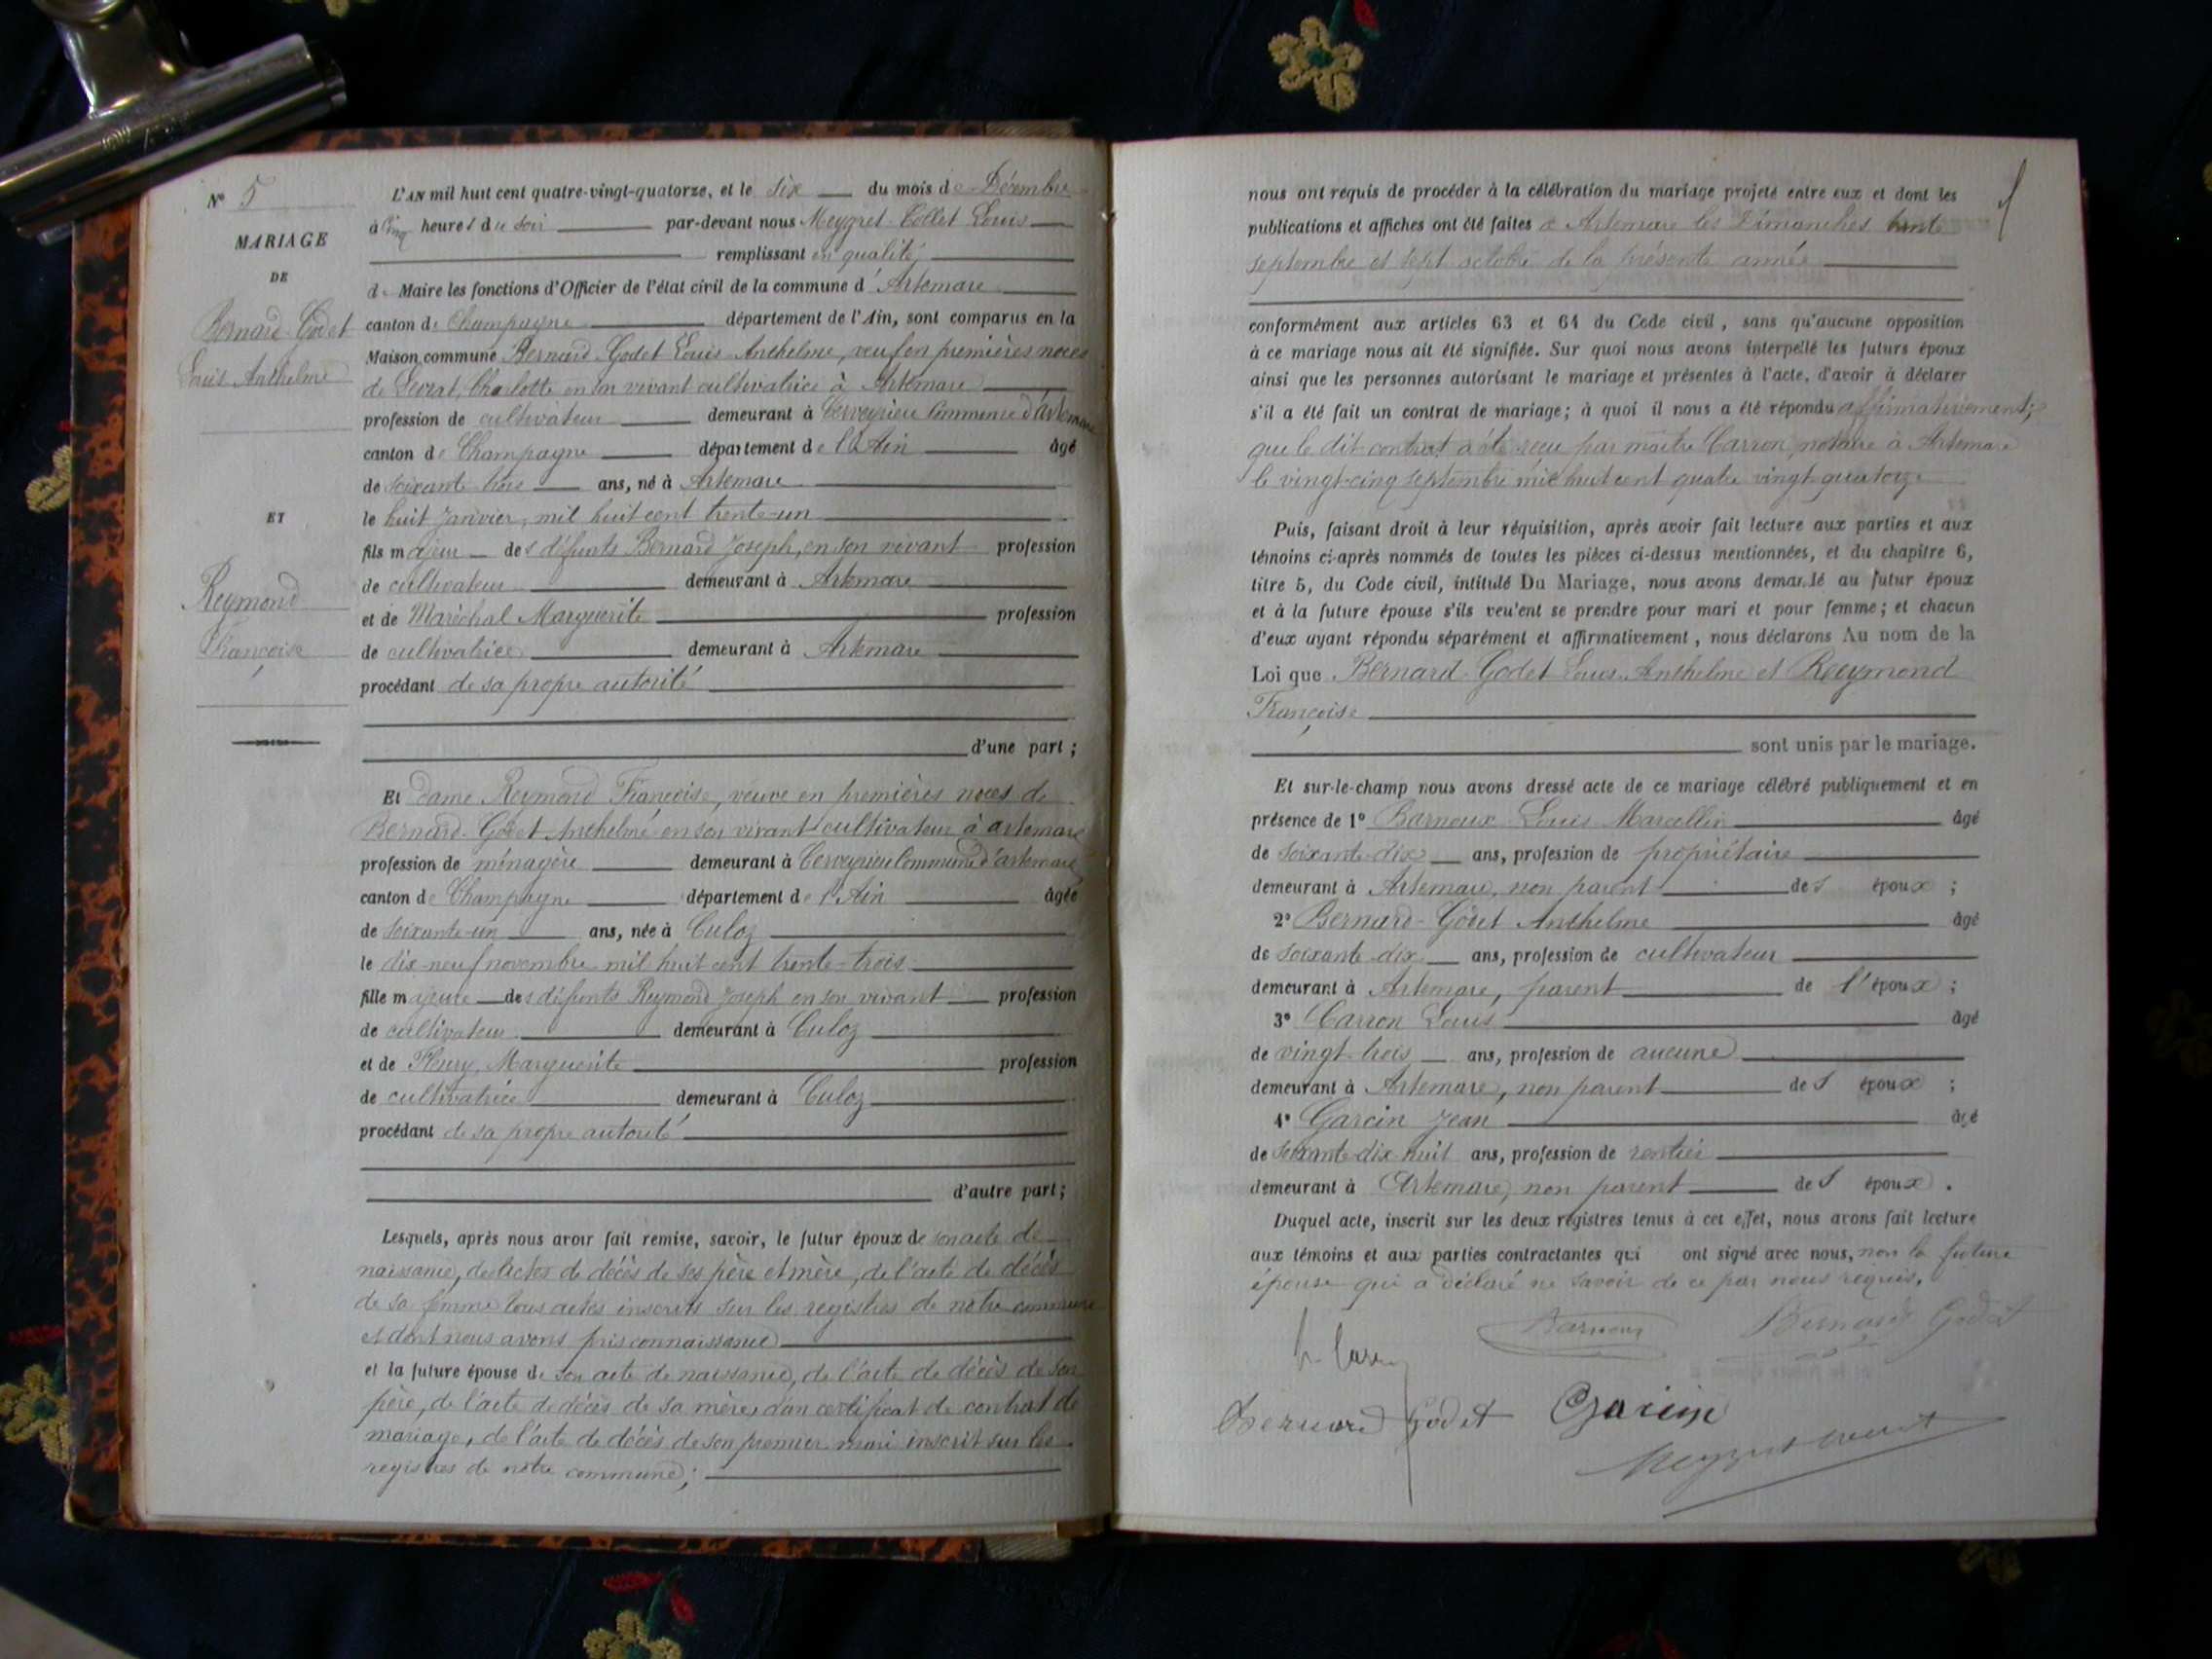 N° 5
MARIAGE
DE
Bernard-Godet
Louis Anthelme
ET
Reymond
Françoise
L'AN mil huit cent quatre-vingt-quatorze, et le six du mois de Décembre
à cinq heures du soir par-devant nous Meygret-Collet Louis
remplissant en qualité
de Maire les fonctions d'Officier de l'état civil de la commune d'Artemare
canton de Champagne département de l'Ain, sont comparus en la
Maison commune Bernard-Godet Louis-Anthelme, veuf en premières noces
de Charlotte en son vivant cultivatrice à Artemare
profession de cultivateur demeurant à Cerveyrieu Commune d'artemare
canton de Champagne département de l'Ain âgé
de soixante-trois ans, né à Artemare
le huit Janvier, mil huit cent trente-un
fils majeur des défunts Bernard Joseph, en son vivant profession
de cultivateur demeurant à Artemare
et de Maréchal Marguerite profession
de cultivatrice demeurant à Artemare
procédant de sa propre autorité
d'une part ;
Et dame Reymond Françoise, veuve en premières noces de
Bernard-Godet Anthelme en son vivant cultivateur à artemare
profession de ménagère demeurant à Cerveyrieu Commune d'artemare
canton de Champagne département de l'Ain âgée
de soixante-un ans, née à Culoz
le dix-neuf novembre mil huit cent trente-trois
fille majeure des défunts Reymond Joseph en son vivant profession
de cultivateur demeurant à Culoz
et de Fleury Marguerite profession
de cultivatrice demeurant à Culoz
procédant de sa propre autorité
d'autre part ;
Lesquels, après nous avoir fait remise, savoir, le futur époux de son acte de
naissance, des actes de décès de ses père et mère, de l'acte de décès
de sa femme tous actes inscrits sur les registres de notre commune
et dont nous avons pris connaissance
et la future épouse de son acte de naissance, de l'acte de décès de son
père, de l'acte de décès de sa mère, d'un certificat de contrat de
mariage, de l'acte de décès de son premier mari inscrit sur les
registres de notre commune ;
nous ont requis de procéder à la célébration du mariage projeté entre eux et dont les
publications et affiches ont été faites à Artemare les Dimanches trente
septembre et sept octobre de la présente année
conformément aux articles 63 et 64 du Code civil, sans qu'aucune opposition
à ce mariage nous ait été signifiée. Sur quoi nous avons interpellé les futurs époux
ainsi que les personnes autorisant le mariage et présentes à l'acte, d'avoir à déclarer
s'il a été fait un contrat de mariage ; à quoi il nous a été répondu affirmativement ;
que le dit contrat a été reçu par maître Carron, notaire à Artemare
le vingt-cinq septembre mil huit cent quatre vingt quatorze
Puis, faisant droit à leur réquisition, après avoir fait lecture aux parties et aux
témoins ci-après nommés de toutes les pièces ci-dessus mentionnées, et du chapitre 6,
titre 5, du Code civil, intitulé Du Mariage, nous avons demandé au futur époux
et à la future épouse s'ils veulent se prendre pour mari et pour femme ; et chacun
d'eux ayant répondu séparément et affirmativement, nous déclarons Au nom de la
Loi que Bernard-Godet Louis-Anthelme et Reymond
Françoise
sont unis par le mariage.
Et sur-le-champ nous avons dressé acte de ce mariage célébré publiquement et en
présence de 1° Barnoux Louis Marcellin âgé
de soixante-dix ans, profession de propriétaire
demeurant à Artemare, non parent des époux ;
2° Bernard-Godet Anthelme âgé
de soixante-dix ans, profession de cultivateur
demeurant à Artemare, parent de l'époux ;
3° Carron Louis âgé
de vingt-trois ans, profession de aucune
demeurant à Artemare, non parent des époux ;
4° Garcin Jean âgé
de soixante-dix huit ans, profession de rentier
demeurant à Artemare, non parent des époux.
Duquel acte, inscrit sur les deux registres tenus à cet effet, nous avons fait lecture
aux témoins et aux parties contractantes qui ont signé avec nous, non la future
épouse qui a déclaré ne savoir de ce par nous requis.
Barnoux Bernard Godet
Bernard Godet Garcin